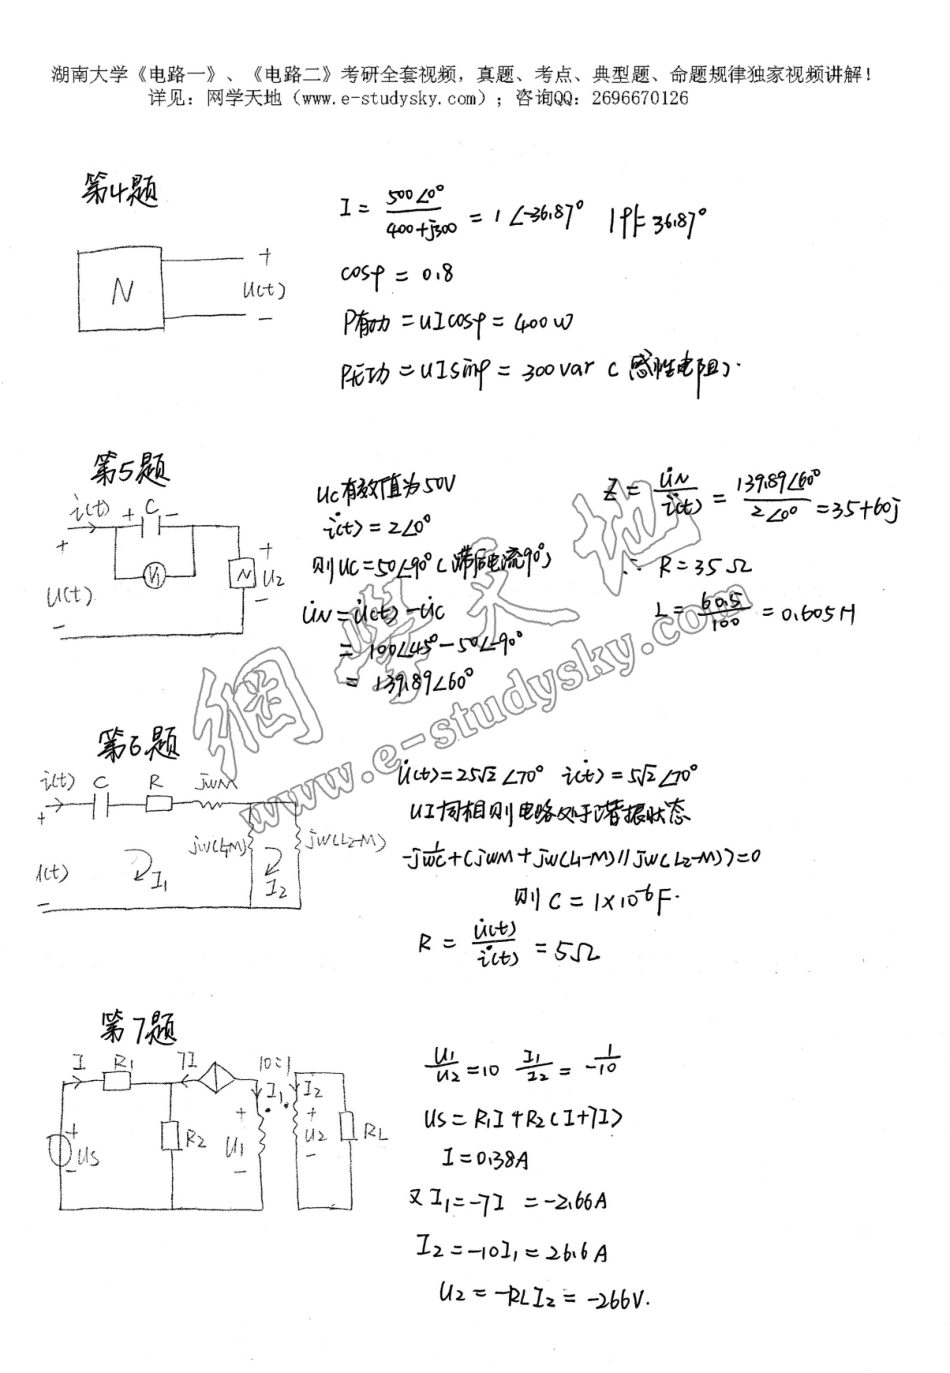 湖南大学《电路一》、《电路二》考研全套视频，真题、考点、典型题、命题规律独家视频讲解！
详见：网学天地（www.e-studysky.com）；咨询QQ：2696670126
第4题
N
+
U(t)
−
I = 500∠0° / (400+j300) = 1∠-36.87° |φ|= 36.87°
cosφ = 0.8
P有功 = UIcosφ = 400W
P无功 = UIsinφ = 300var (感性电阻).
第5题
i(t) + C −
V1
+ U(t) −
N + U2 −
Uc有效值为50V
i(t) = 2∠0°
则Uc = 50∠90° (滞后电流90°)
UN = U(t) − Uc
= 100∠45° − 50∠-90°
= 139.89∠60°
Z = UN / i(t) = 139.89∠60° / 2∠0° = 35+60j
∴ R = 35Ω
L = 60.5 / 100 = 0.605H
網學天地
www.e-studysky.com
第6题
i(t) C R jωM
+
jω(L1-M) jω(L2-M)
U(t) I1 I2
−
U(t) = 25√2∠70° i(t) = 5√2∠70°
UI同相则电路处于谐振状态
-j1/ωC + (jωM + jω(L1-M)//jω(L2-M)) = 0
则 C = 1×10⁻⁶F.
R = U(t) / i(t) = 5Ω
第7题
I R1 7I 10:1
I1 I2
+ US −
R2
+ U1 −
+ U2 −
RL
U1/U2 = 10 I1/I2 = -1/10
US = R1I + R2(I+7I)
I = 0.38A
又 I1 = -7I = -2.66A
I2 = -10I1 = 26.6A
U2 = -RLI2 = -266V.